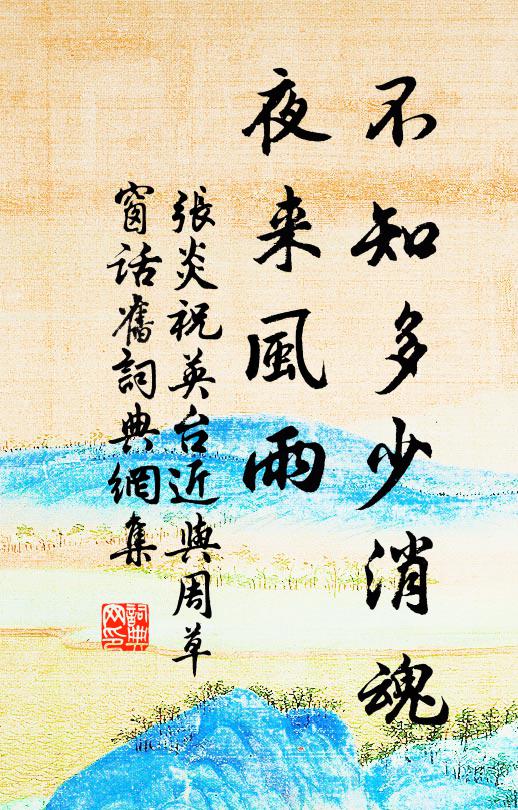 不知多少消魂
夜来風雨
張炎祝英台近與周草
窗话舊詞典網集
詞典网印